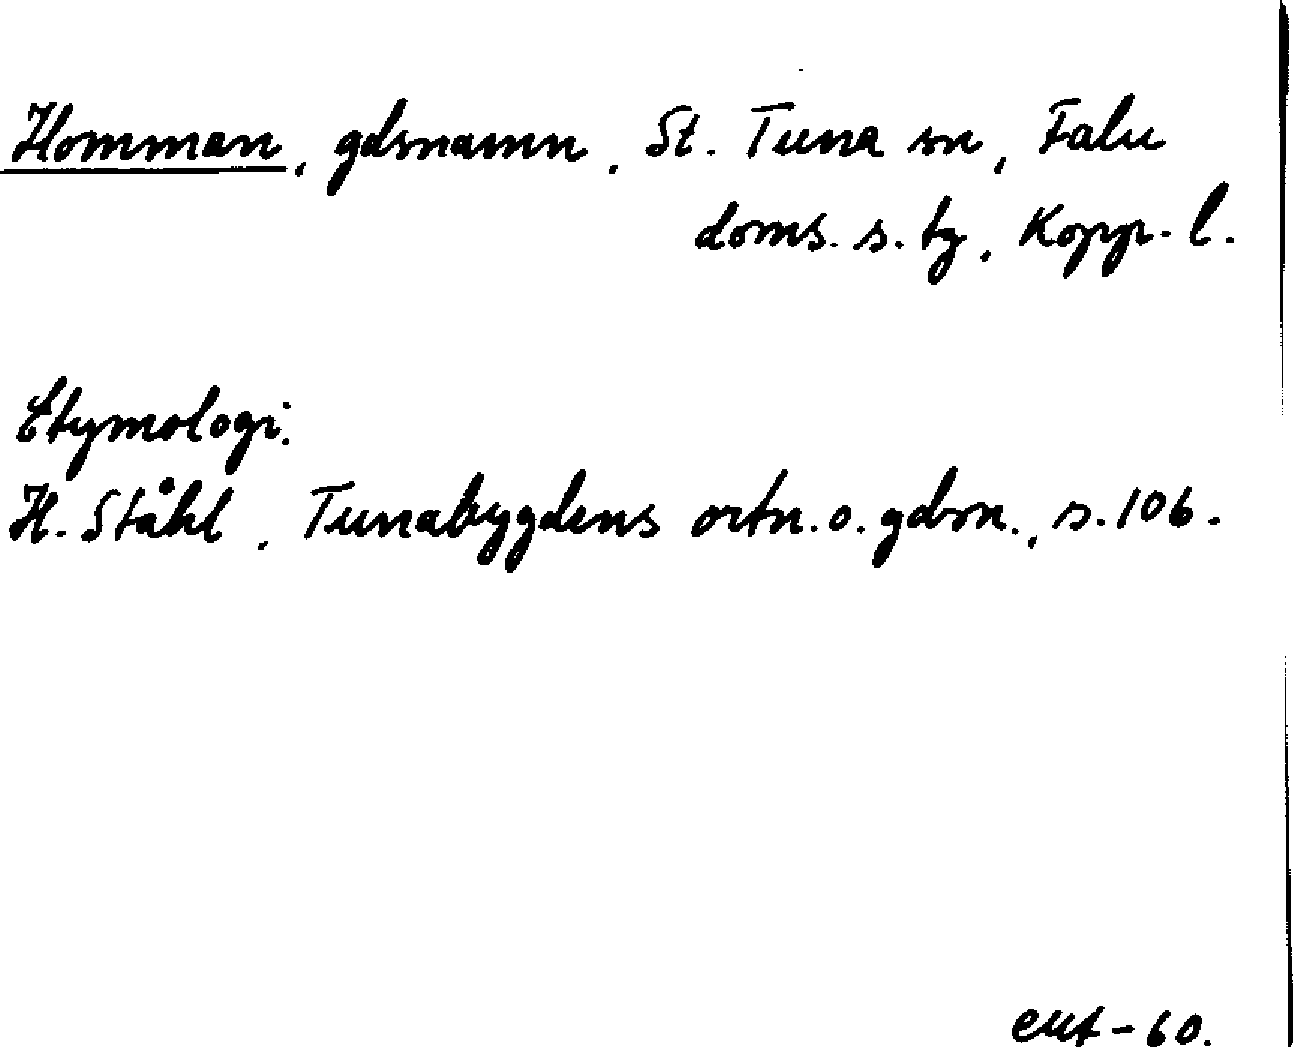 Homman, gdsnamn, St. Tuna sn, Falu
doms. s. tg, Kopp. l.
Etymologi.
H. Ståhl, Tunabygdens ortn. o. gdsn., s. 106.
-60.